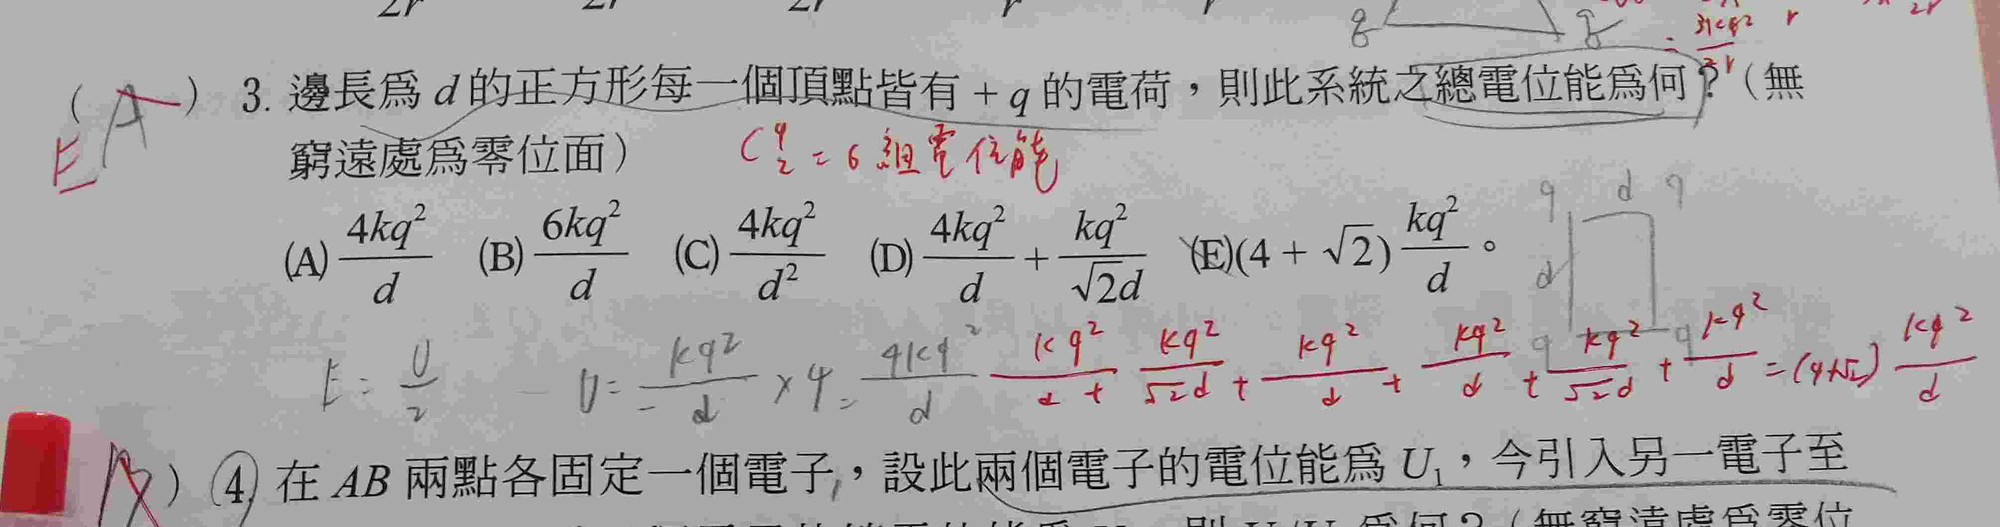 2r 2r 2r r r
q q 3kq² r 2r
( A ) 3. 邊長為 d 的正方形每一個頂點皆有 + q 的電荷，則此系統之總電位能為何？（無
E 窮遠處為零位面） C 4 2 = 6 組電位能
(A) 4kq²/d (B) 6kq²/d (C) 4kq²/d² (D) 4kq²/d + kq²/√2d (E)(4 + √2) kq²/d 。
q d q
d
q q
E = U/2 U = kq²/d × 4 = 4kq²/d kq²/d + kq²/√2d + kq²/d + kq²/d + kq²/√2d + kq²/d = (4+√2) kq²/d
) 4 在 AB 兩點各固定一個電子，設此兩個電子的電位能為 U₁，今引入另一電子至
為何？（無窮遠處為零位